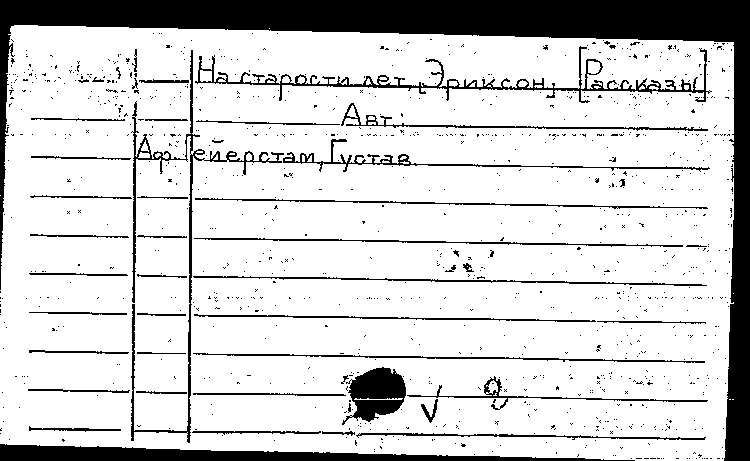 На старости лет, [Эриксон]. [Рассказы]
Авт.:
Аф. Гейерстам, Густав.